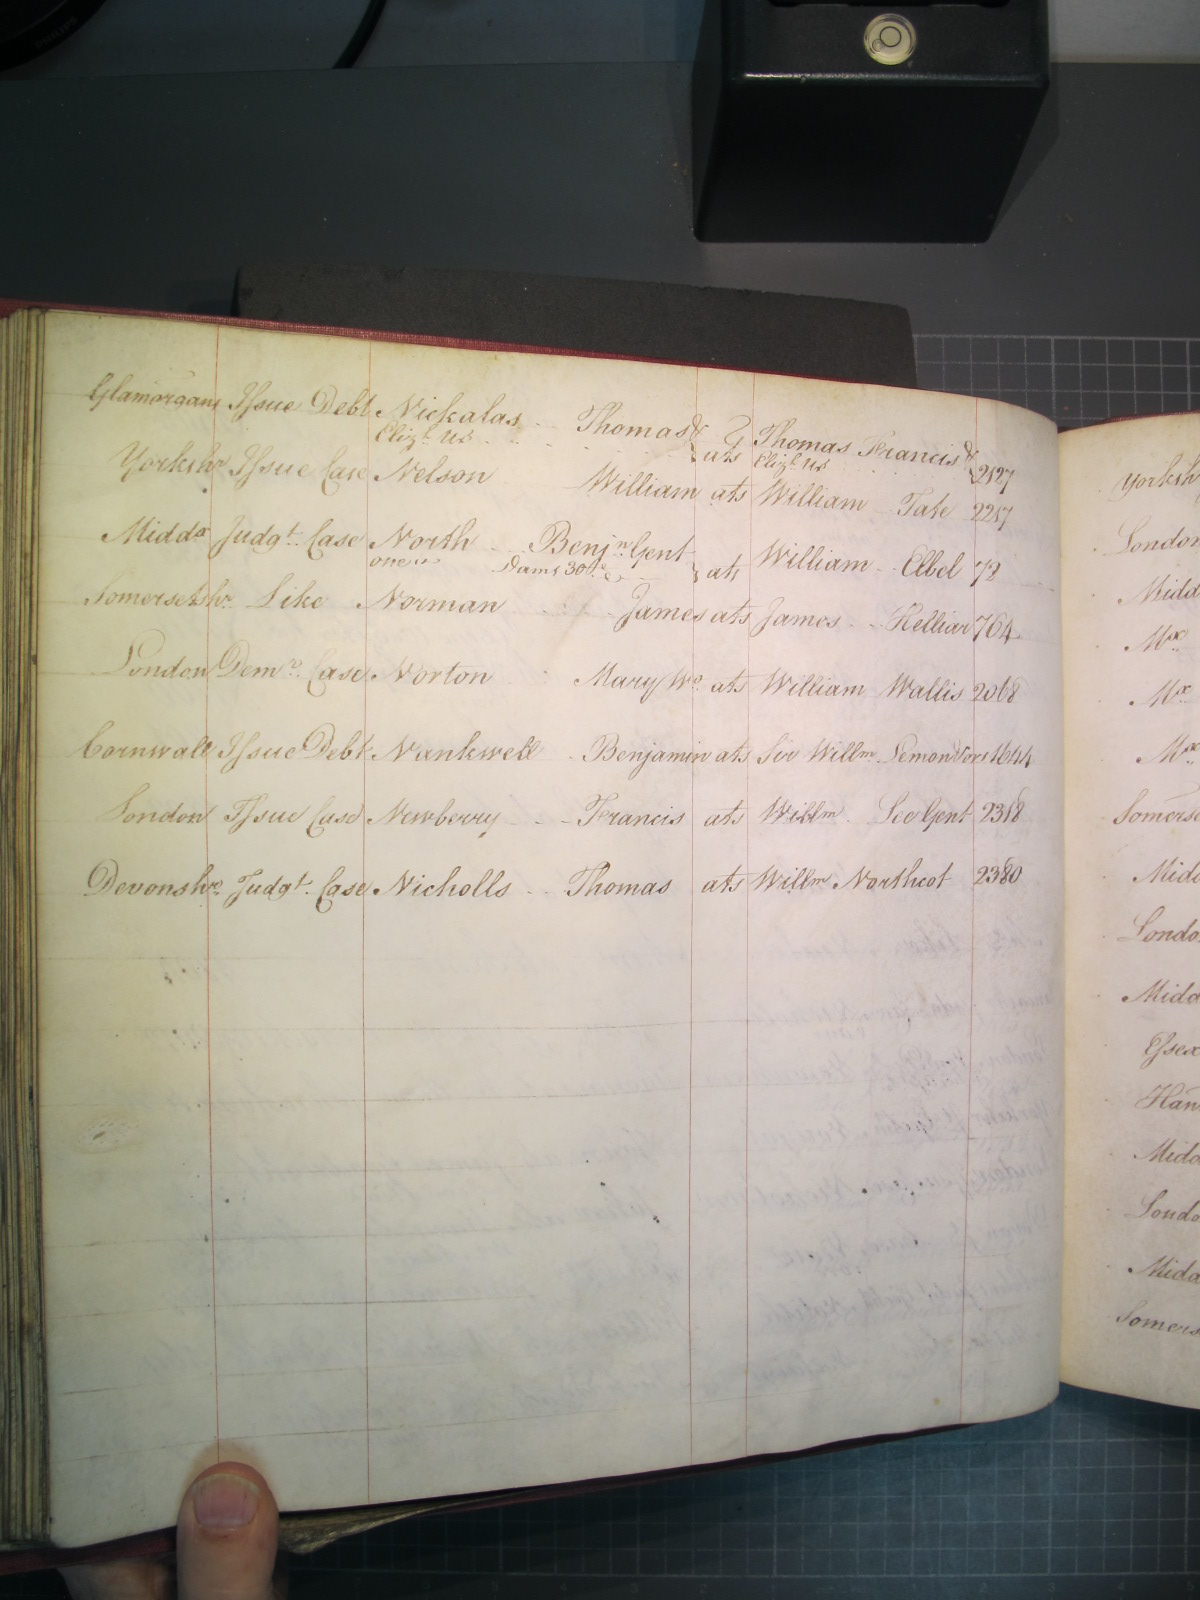 Glamorgans Issue Debt Nickalas Thomas & ats Thomas Francis & 2127
Eliz. ux Eliz. ux
Yorkshr Issue Case Nelson William ats William Tate 2217
Middx Judgt. Case North Benjn. Gent ats William Elbel 72
one &c Dams 30
Somersetshr. Like Norman James ats James Helliar 764
London Demr. Case Norton Mary Wo. ats William Wallis 2068
Cornwall Issue Debt Nankwell Benjamin ats Sir Willm. Lemon 1644
London Issue Case Newberry Francis ats Willm. Lee Gent 2318
Devonshre. Judgt. Case Nicholls Thomas ats Willm Northcot 2380
Yorksh
London
Midd
Mx.
Mx.
Mx.
Somerse
Midd
Londo
Midd
Essex
Han
Midd
Londo
Midd
Somers